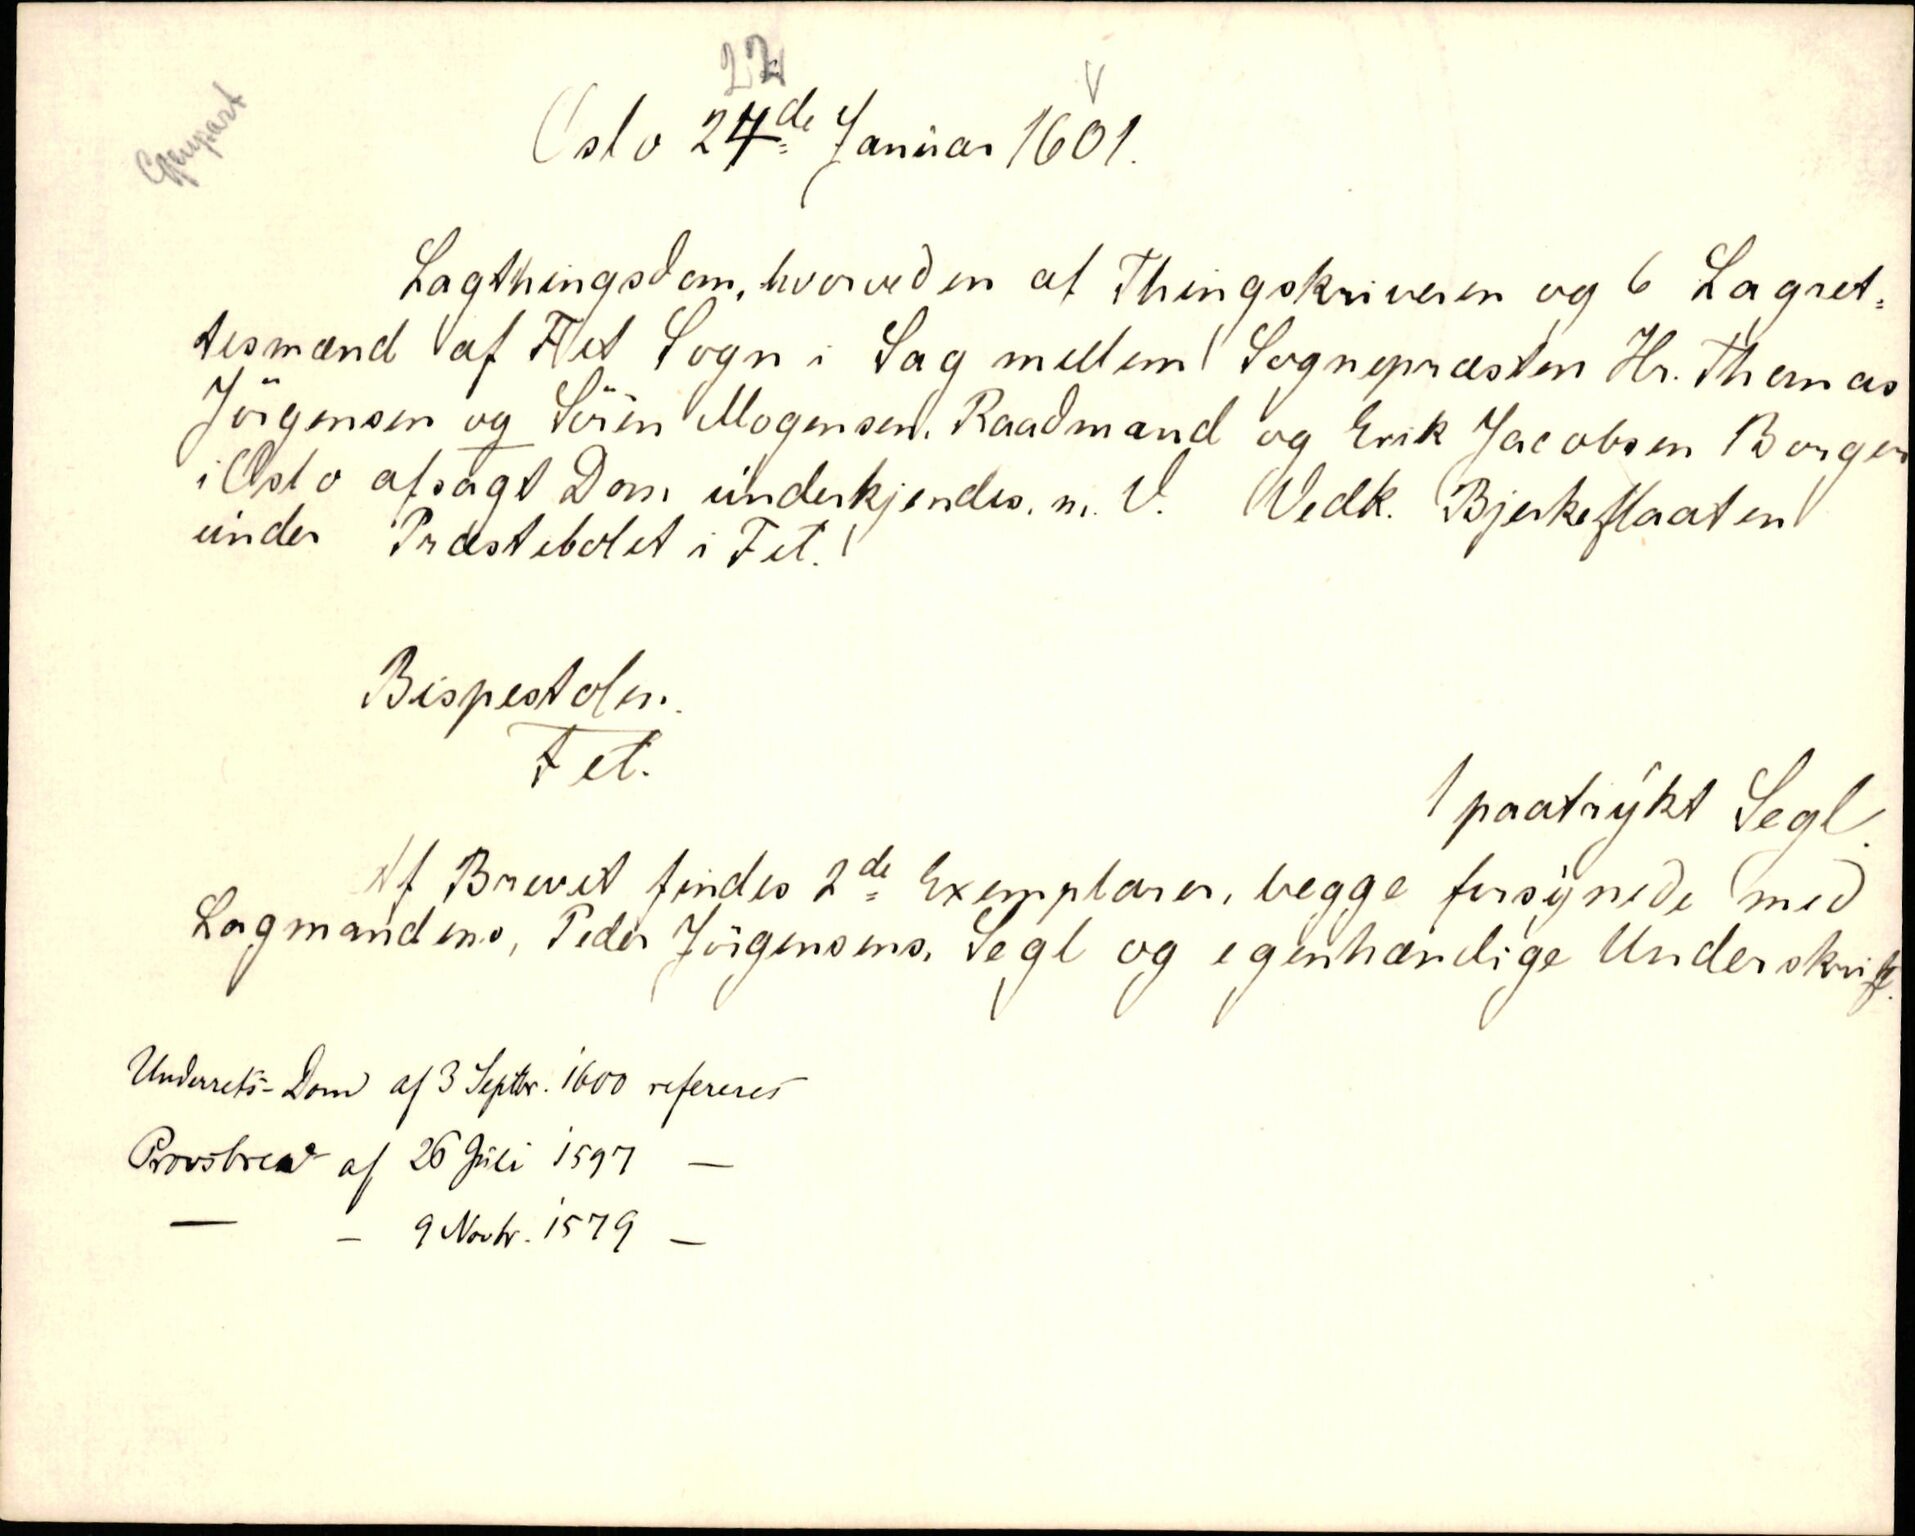 Gjenpart
22 V
Oslo 24de Januar 1601.
Lagthingsdom, hvorved en af Thingskriveren og 6 Lagret-
tesmænd af Fet Sogn i Sag mellem Sognepræsten Hr. Thomas
Jörgensen og Sören Mogensen, Raadmand og Erik Jacobsen Borger
i Oslo afsagt Dom underkjendes. m. V. Vedk. Bjerkeflaaten
under Præstebolet i Fet.
Bispestolen.
Fet.
1 paatrykt Segl.
Af Brevet findes 2de Exemplarer, begge forsynede med
Lagmandens, Peder Jörgensens, Segl og egenhændige Underskrift.
Underrets-Dom af 3 Septbr. 1600 refereres
Provsbrev af 26 Juli 1597 —
— - 9 Novbr. 1579 —